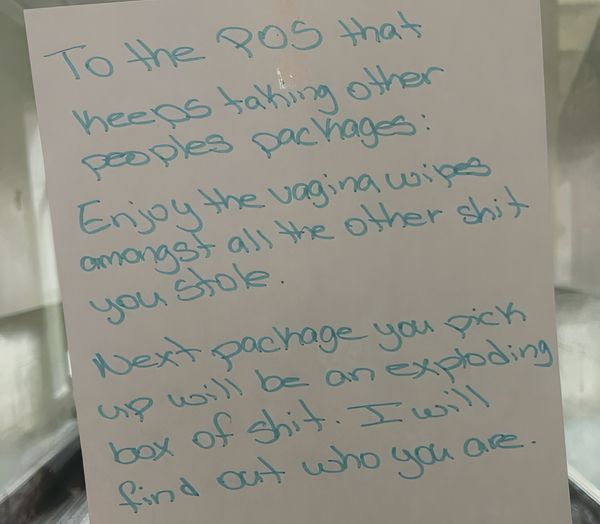 To the POS that
keeps taking other
peoples packages:
Enjoy the vagina wipes
amongst all the other shit
you stole.
Next package you pick
up will be an exploding
box of shit. I will
find out who you are.